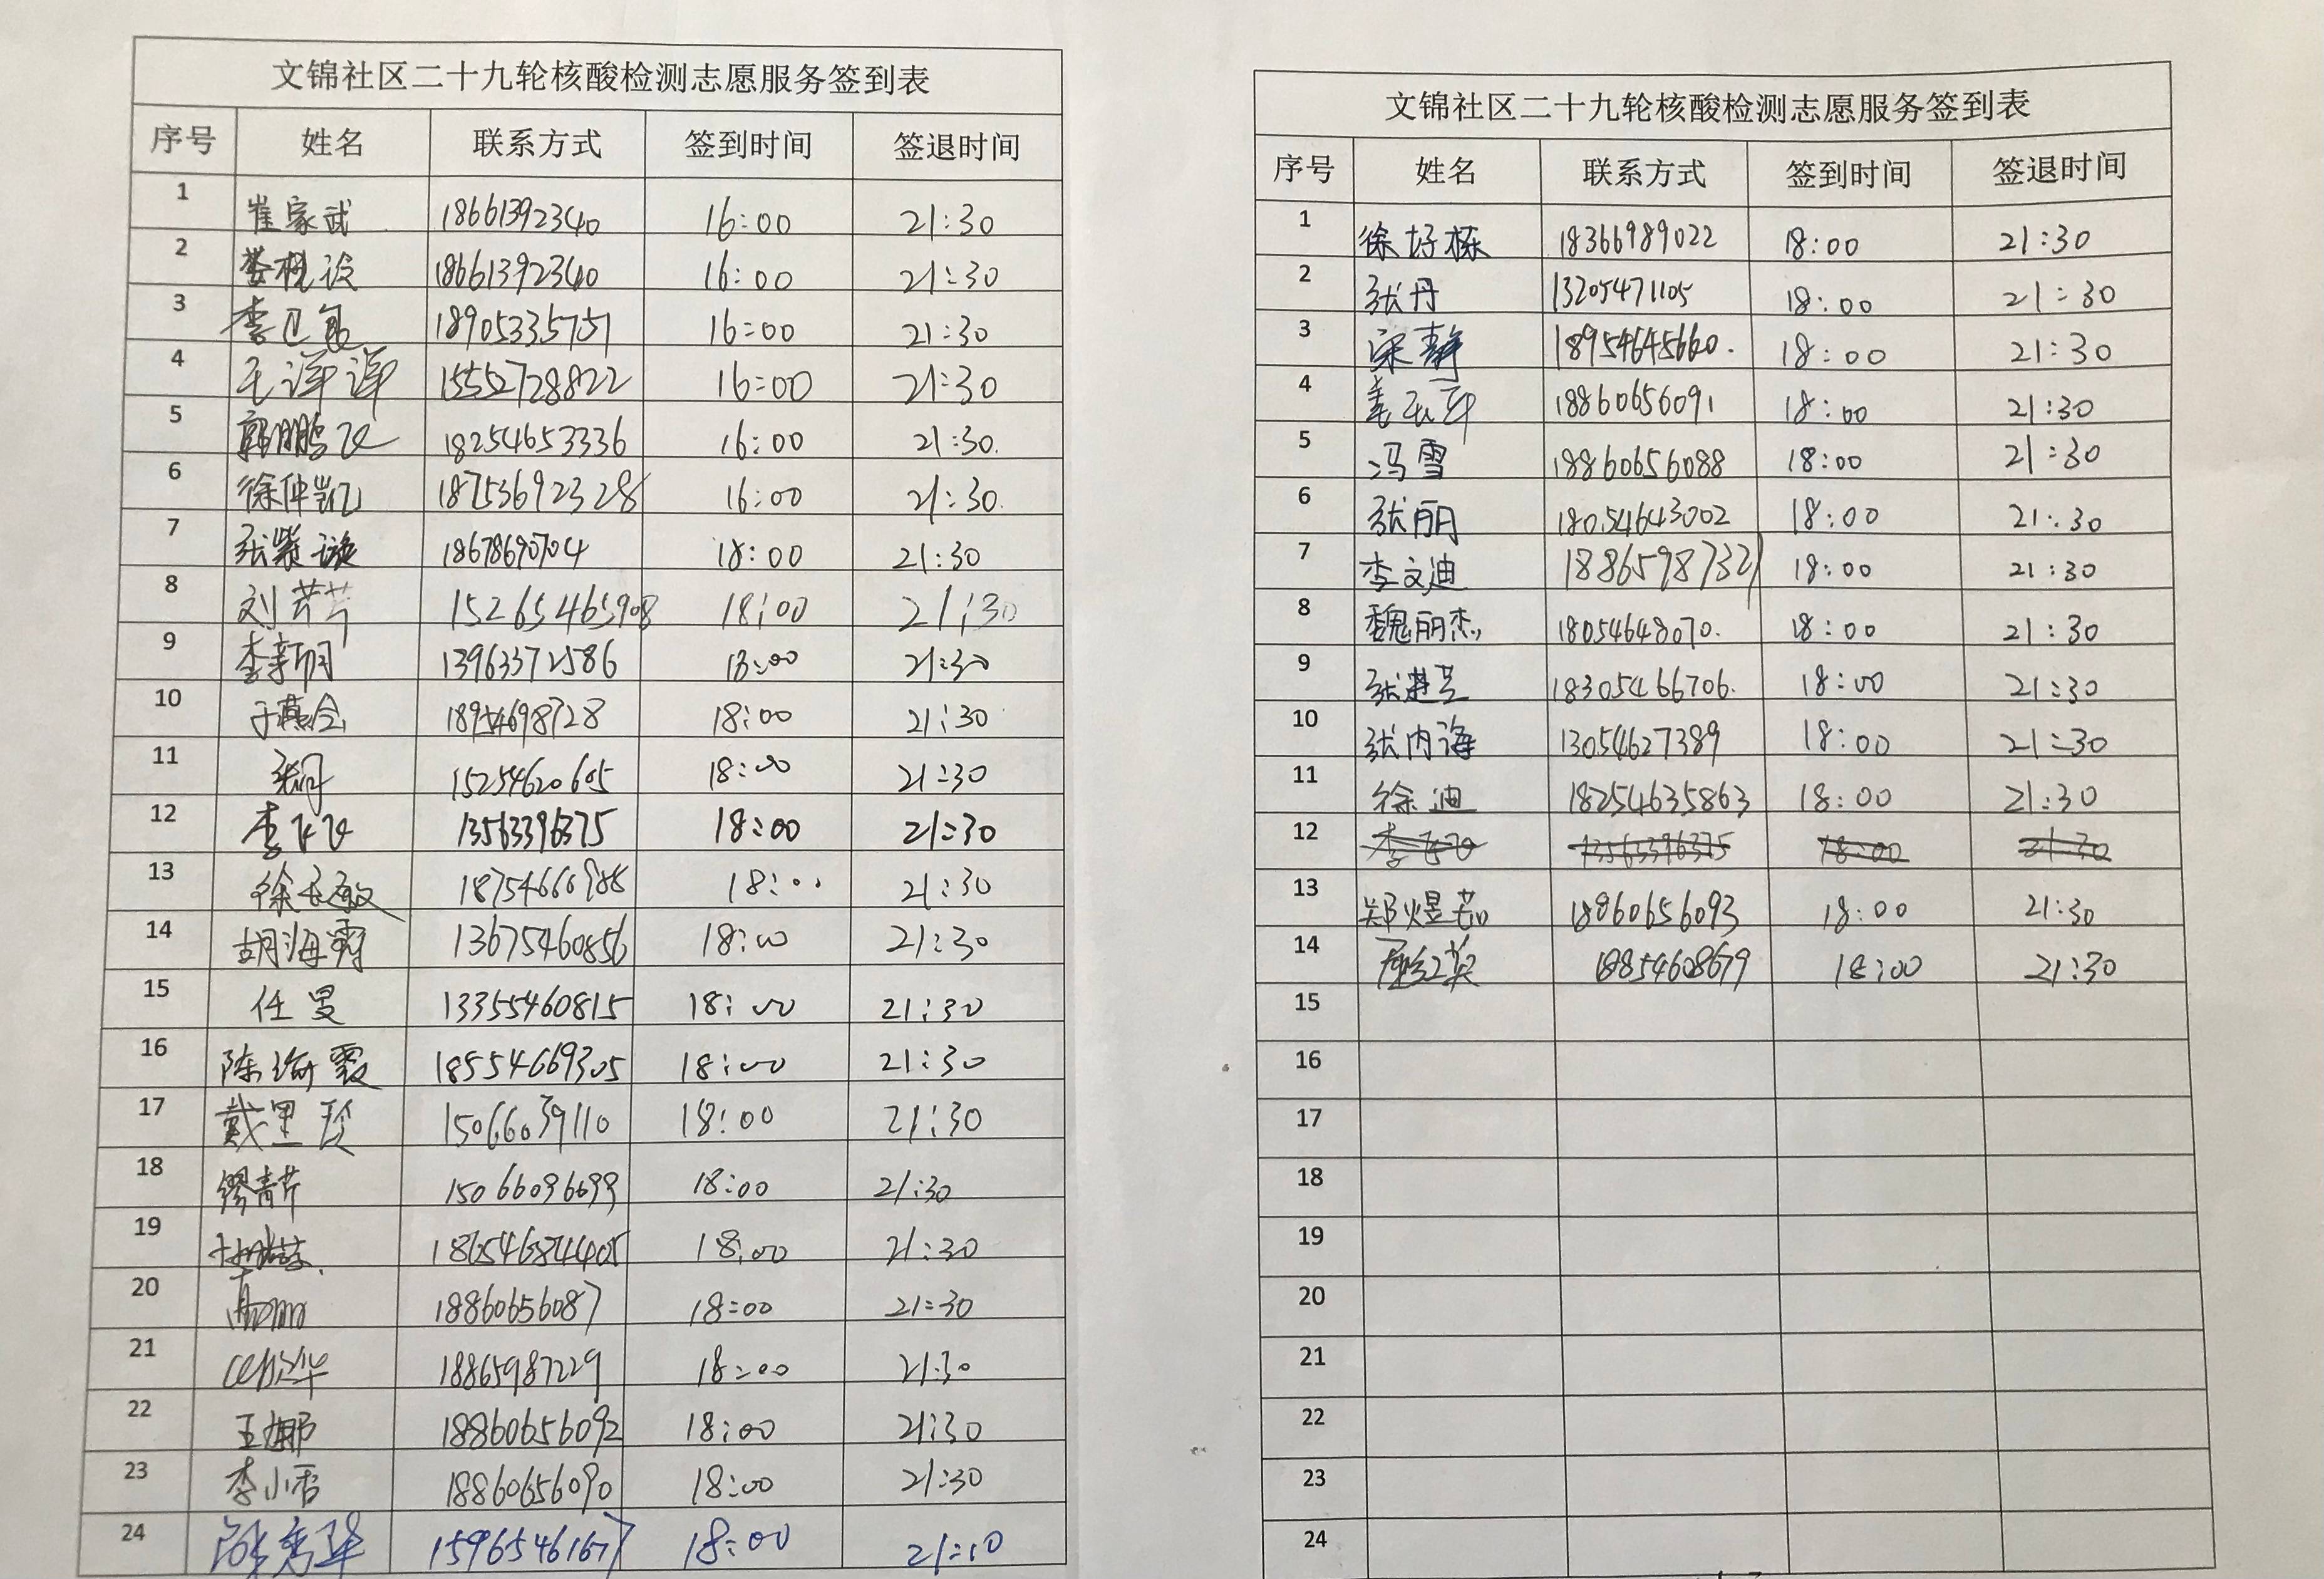 文锦社区二十九轮核酸检测志愿服务签到表
序号 姓名 联系方式 签到时间 签退时间
1 崔家武 18661392340 16:00 21:30
2 18661392340 16:00 21:30
3 李卫国 18905335751 16:00 21:30
4 王洋洋 15552728822 16:00 21:30
5 郭鹏飞 18254653336 16:00 21:30.
6 徐仲凯 18753692328 16:00 21:30.
7 张紫璇 18678690704 18:00 21:30
8 刘芹芹 15265465908 18:00 21:30
9 李新明 13963372586 18:00 21:30
10 于燕会 18954698728 18:00 21:30
11 15254620605 18:00 21:30
12 李飞飞 13563396375 18:00 21:30
13 徐长敏 18754660988 18:00 21:30
14 胡海霞 13675460856 18:00 21:30
15 任旻 13355460815 18:00 21:30
16 陈海霞 18554669305 18:00 21:30
17 戴里珍 15066039110 18:00 21:30
18 缪青芹 15066096699 18:00 21:30
19 18:00 21:30
20 18860656087 18:00 21:30
21 18865987229 18:00 21:30
22 王娜 18860656092 18:00 21:30
23 李小香 18860656090 18:00 21:30
24 陈秀华 15965461677 18:00 21:10
文锦社区二十九轮核酸检测志愿服务签到表
序号 姓名 联系方式 签到时间 签退时间
1 徐好栋 18366989022 18:00 21:30
2 张丹 13205471105 18:00 21:30
3 宋静 18954645660. 18:00 21:30
4 18860656091 18:00 21:30
5 冯雪 18860656088 18:00 21:30
6 张丽 18054643002 18:00 21:30
7 李文迪 18865987321 18:00 21:30
8 魏丽杰 18054648070. 18:00 21:30
9 张进芝 18305466706. 18:00 21:30
10 张内海 13054627389 18:00 21:30
11 徐迪 18254635863 18:00 21:30
12 李飞飞 13563396375 18:00 21:30
13 郑煜茹 18860656093 18:00 21:30
14 屈红英 18854608679 18:00 21:30
15
16
17
18
19
20
21
22
23
24